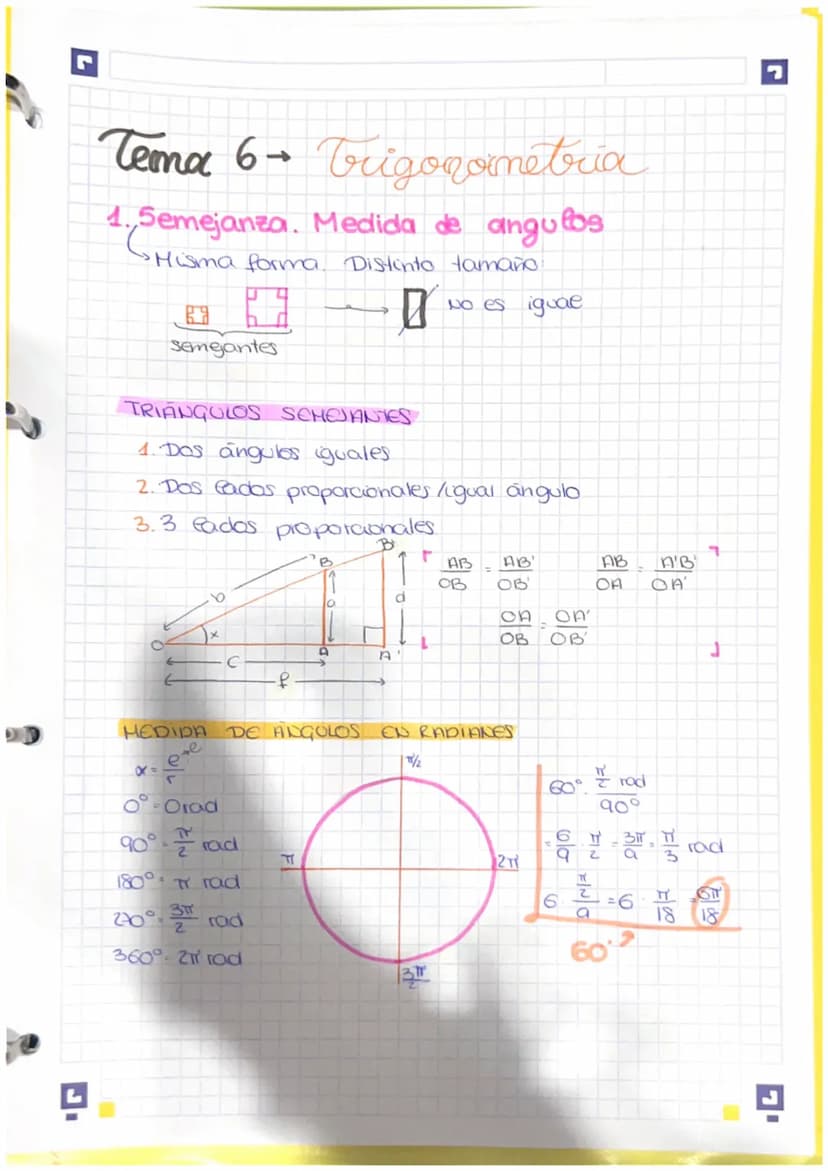 Tema 6 → Trigonometria
1. Semejanza. Medida de angulos
↳ Misma forma. Distinto tamaño
→ NO es igual
semejantes
TRIÁNGULOS SEMEJANTES
1. Dos ángulos iguales
2. Dos lados proporcionales / igual ángulo
3. 3 lados proporcionales
B'
B
b
a
d
x
O
A
A'
c
f
AB/OB = AB'/OB'
AB/OA = A'B'/OA'
OA/OB = OA'/OB'
MEDIDA DE ÁNGULOS EN RADIANES
0º = 0 rad
90º = π/2 rad
180º = π rad
270º = 3π/2 rad
360º = 2π rad
π/2
π
2π
3π/2
60º · π/2 rad / 90º
= 6/9 · π/2 = 3π/9 = π/3 rad
6 · π/2 / 9 = 6 · π/18 = 6π/18
60º